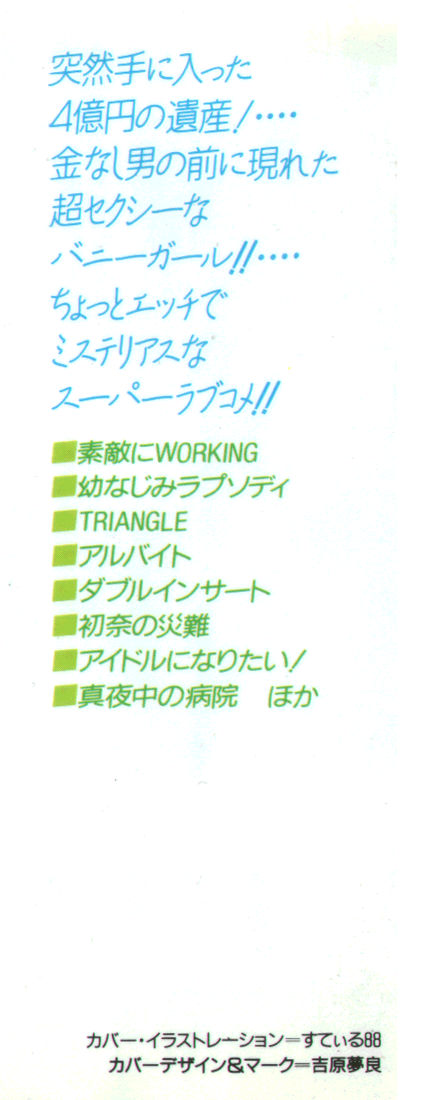 突然手に入った
4億円の遺産!‥‥
金なし男の前に現れた
超セクシーな
バニーガール!!‥‥
ちょっとエッチで
ミステリアスな
スーパーラブコメ!!
■素敵にWORKING
■幼なじみラプソディ
■TRIANGLE
■アルバイト
■ダブルインサート
■初奈の災難
■アイドルになりたい!
■真夜中の病院 ほか
カバー・イラストレーション=すてぃる88
カバーデザイン&マーク=吉原夢良